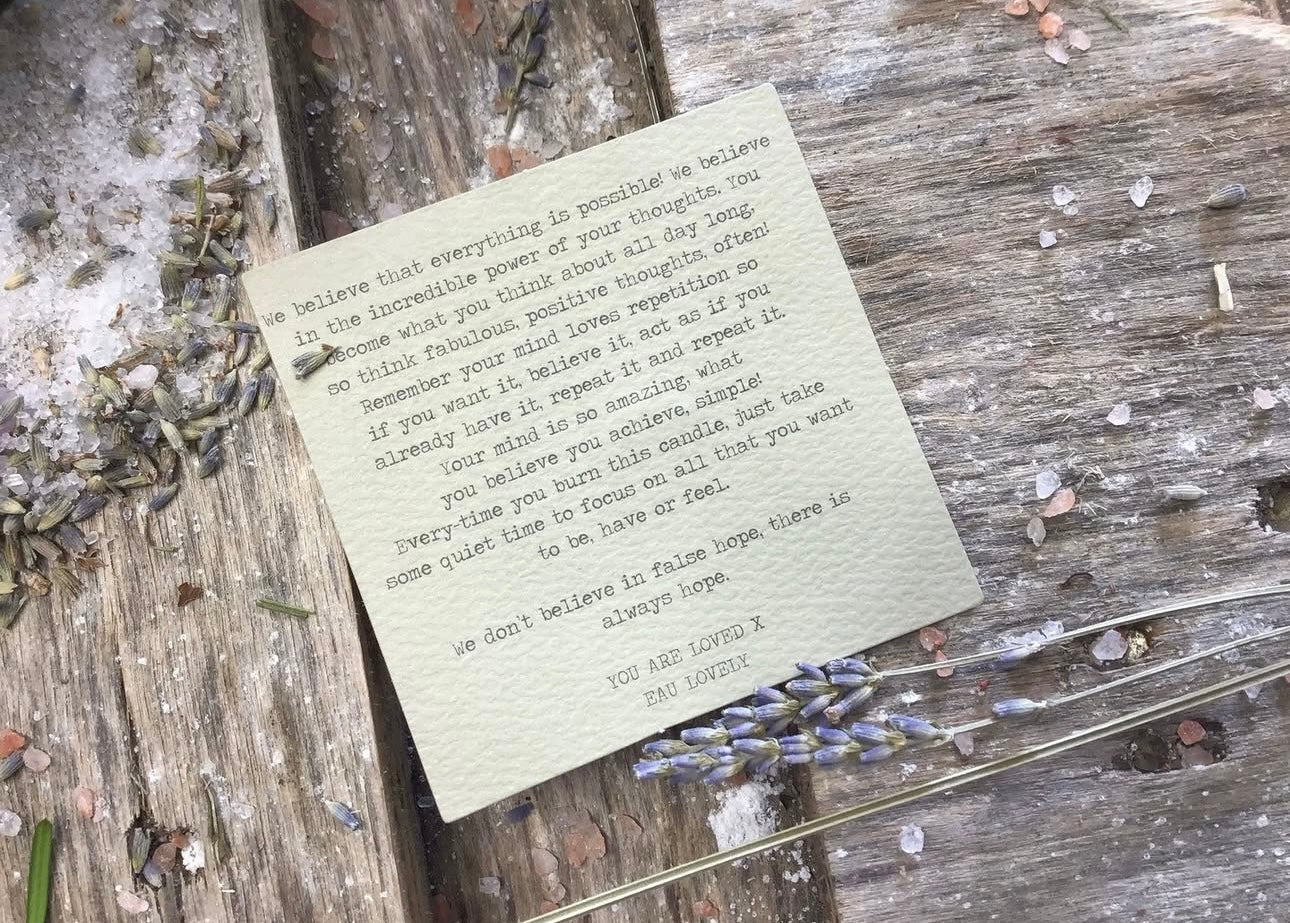 We believe that everything is possible! We believe
in the incredible power of your thoughts. You
become what you think about all day long,
so think fabulous, positive thoughts, often!
Remember your mind loves repetition so
if you want it, believe it, act as if you
already have it, repeat it and repeat it.
Your mind is so amazing, what
you believe you achieve, simple!
Every-time you burn this candle, just take
some quiet time to focus on all that you want
to be, have or feel.
We don't believe in false hope, there is
always hope.
YOU ARE LOVED X
EAU LOVELY